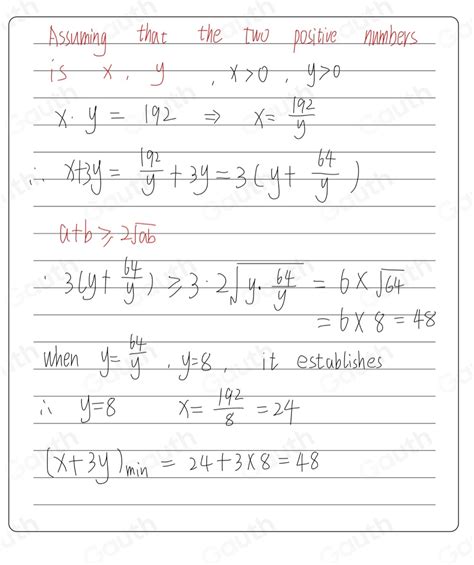 Assuming that the two positive numbers
is x, y , x>0 , y>0
x · y = 192 ⇒ x = 192/y
∴ x+3y = 192/y + 3y = 3(y + 64/y)
a+b ≥ 2√ab
∵ 3(y + 64/y) ≥ 3·2√(y·64/y) = 6×√64
= 6×8 = 48
When y = 64/y , y=8, it establishes
∴ y=8 x = 192/8 = 24
(x+3y)min = 24+3×8 = 48